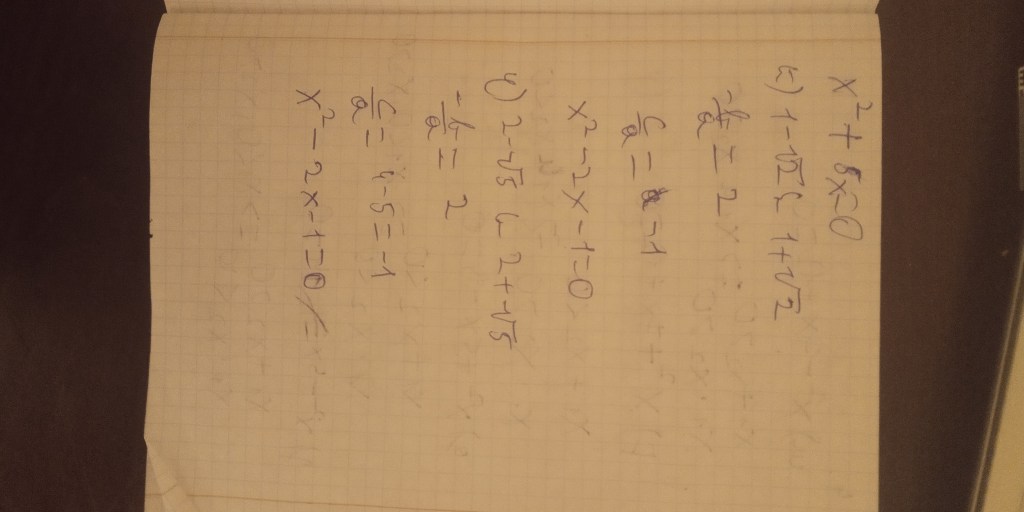 x² + 8x=0
հ) 1-√2 և 1+√2
-b/a = 2
c/a = -1
x²-2x-1=0
ղ) 2-√5 և 2+√5
-b/a = 2
c/a = 4-5=-1
x²-2x-1=0